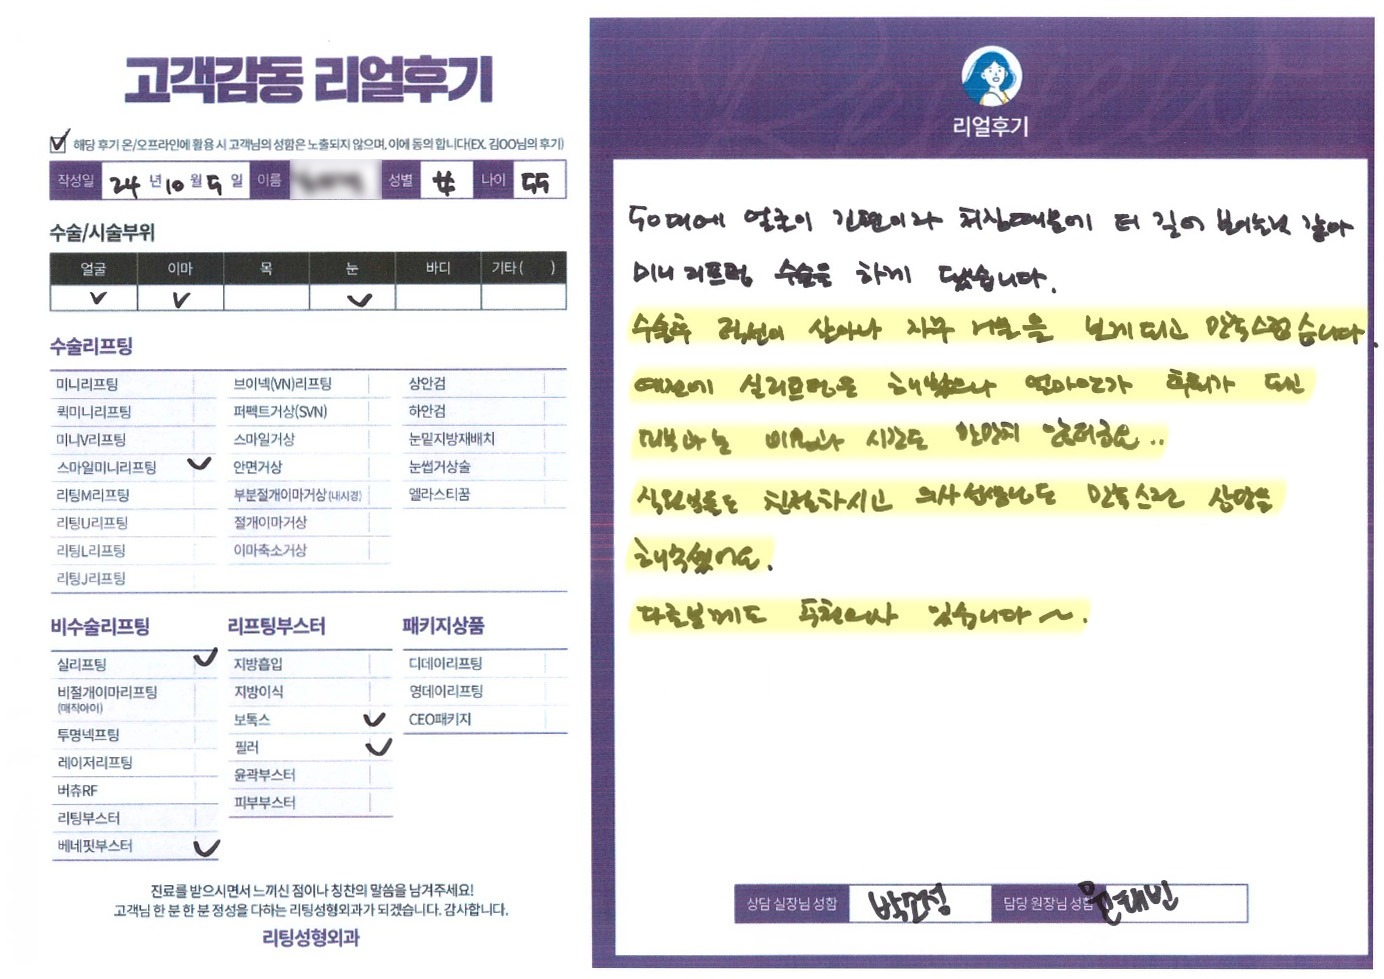 고객감동 리얼후기
해당 후기 온/오프라인에 활용 시 고객님의 성함은 노출되지 않으며, 이에 동의 합니다(EX. 김OO님의 후기)
작성일 24 년 10 월 5 일 이름 성별 女 나이 55
수술/시술부위
얼굴 이마 목 눈 바디 기타 ( )
수술리프팅
미니리프팅
퀵미니리프팅
미니V리프팅
스마일미니리프팅
리팅M리프팅
리팅U리프팅
리팅L리프팅
리팅J리프팅
브이넥(VN)리프팅
퍼펙트거상(SVN)
스마일거상
안면거상
부분절개이마거상(내시경)
절개이마거상
이마축소거상
상안검
하안검
눈밑지방재배치
눈썹거상술
엘라스티꿈
비수술리프팅
실리프팅
비절개이마리프팅
(매직아이)
투명넥프팅
레이저리프팅
버츄RF
리팅부스터
베네핏부스터
리프팅부스터
지방흡입
지방이식
보톡스
필러
윤곽부스터
피부부스터
패키지상품
디데이리프팅
영데이리프팅
CEO패키지
진료를 받으시면서 느끼신 점이나 칭찬의 말씀을 남겨주세요!
고객님 한 분 한 분 정성을 다하는 리팅성형외과가 되겠습니다. 감사합니다.
리팅성형외과
Review
리얼후기
50대에 얼굴이 긴편이라 처짐때문에 더 길어 보이는것 같아
미니리프팅 수술을 하게 됐습니다.
수술후 턱선이 살아나 자꾸 거울을 보게되고 만족스럽습니다.
예전에 실리프팅은 해봤으나 얼마안가 후회가 되신
비용과 시간도 않더라구요..
직원분들도 친절하시고 의사선생님도 만족스런 상담을
해주셨어요.
다른분께도 추천의사 있습니다~.
상담 실장님 성함 박민정 담당 원장님 성함 윤태빈